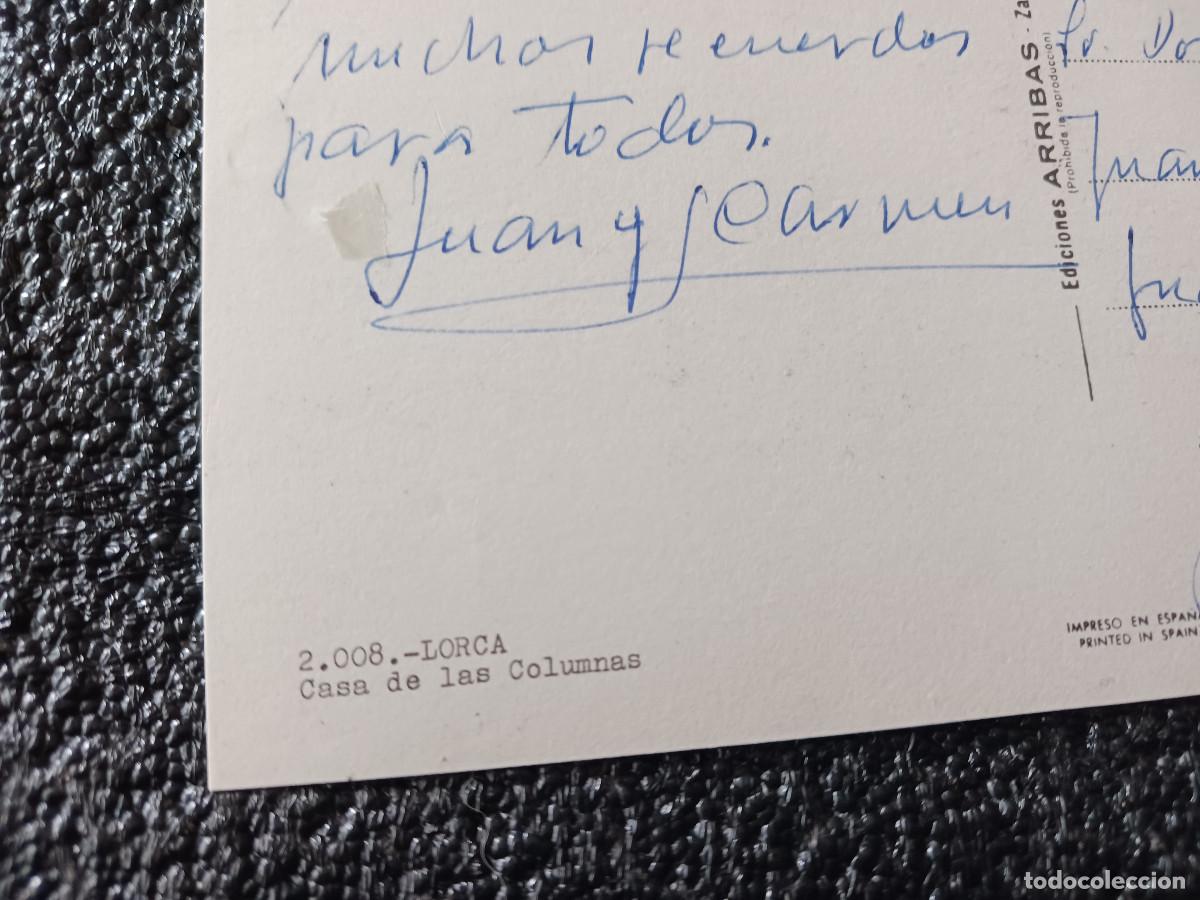 muchos recuerdos
para todos.
Juan y Carmen
Ediciones ARRIBAS - Za
(Prohibida la reproducción)
Sr. Do
Juan
2.008.-LORCA
Casa de las Columnas
IMPRESO EN ESPAÑA
PRINTED IN SPAIN
todocoleccion